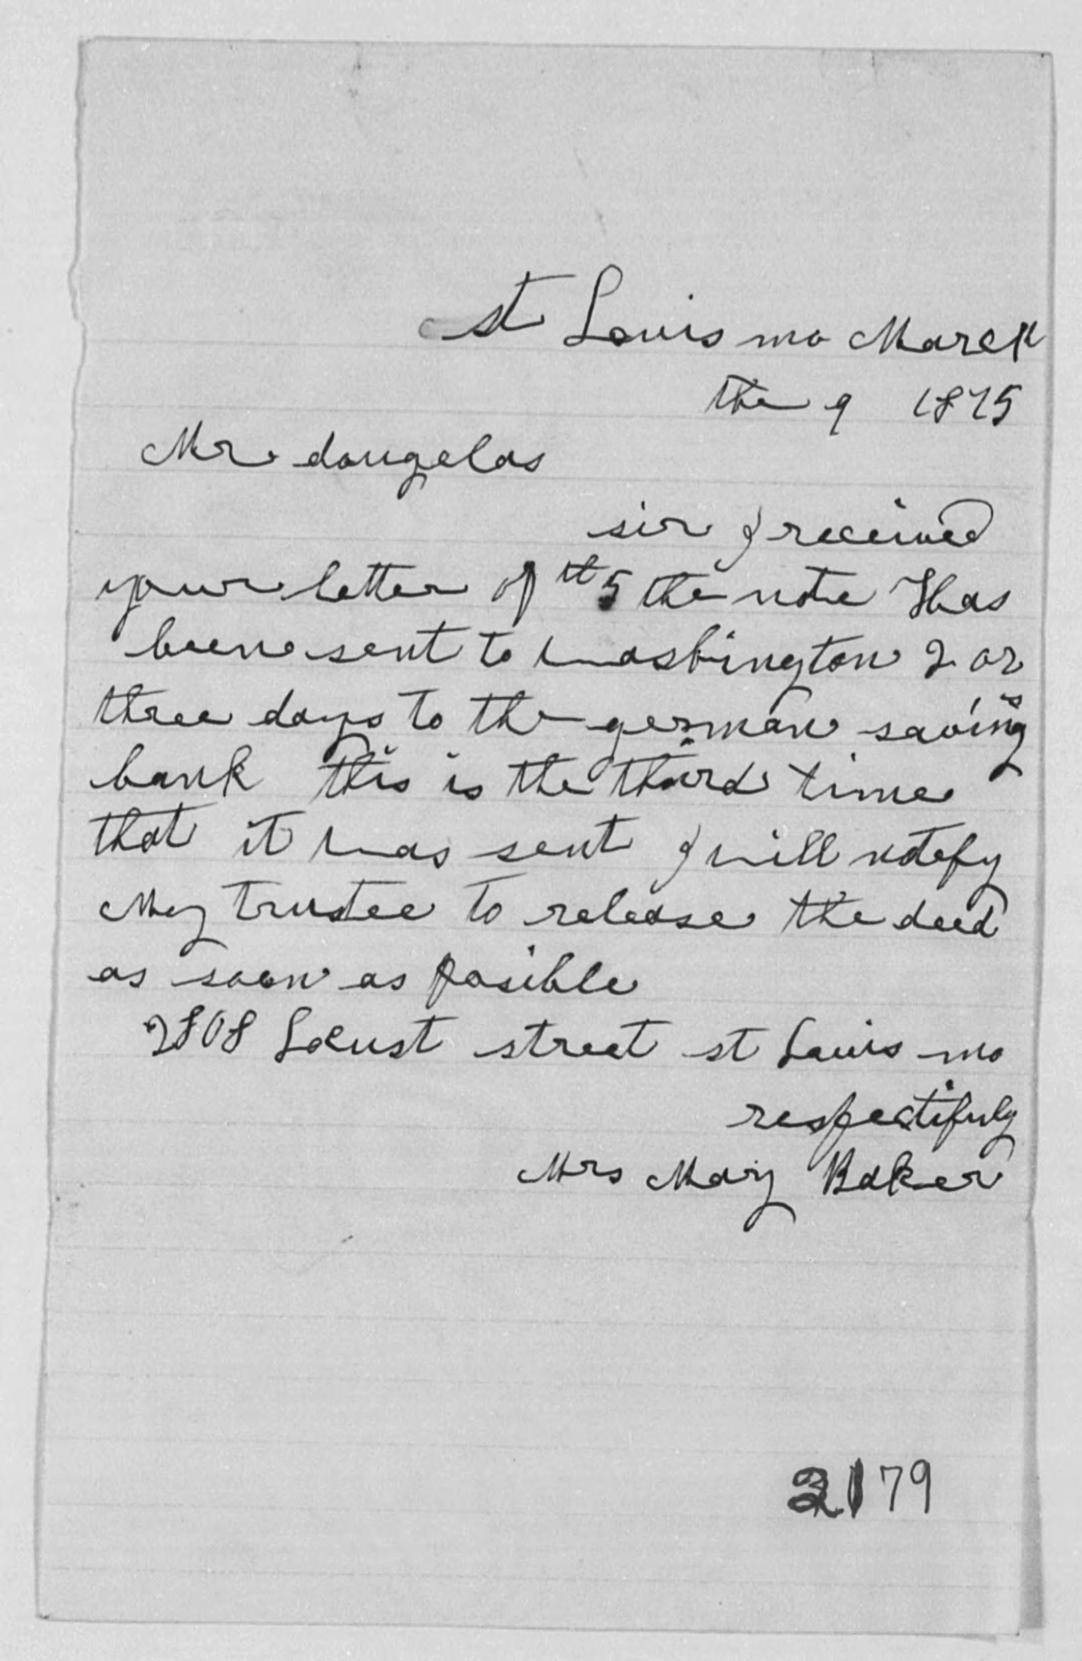 st Louis mo March
the 9 1875
Mr dougelas
sir I received
your letter of th 5 the note Has
been sent to washington 2 or
three days to the german saving
bank this is the third time
that it was sent I will notefy
My trustee to release the deed
as soon as posible
2808 Locust street st Louis mo
respectifuly
Mrs Mary Baker
2179